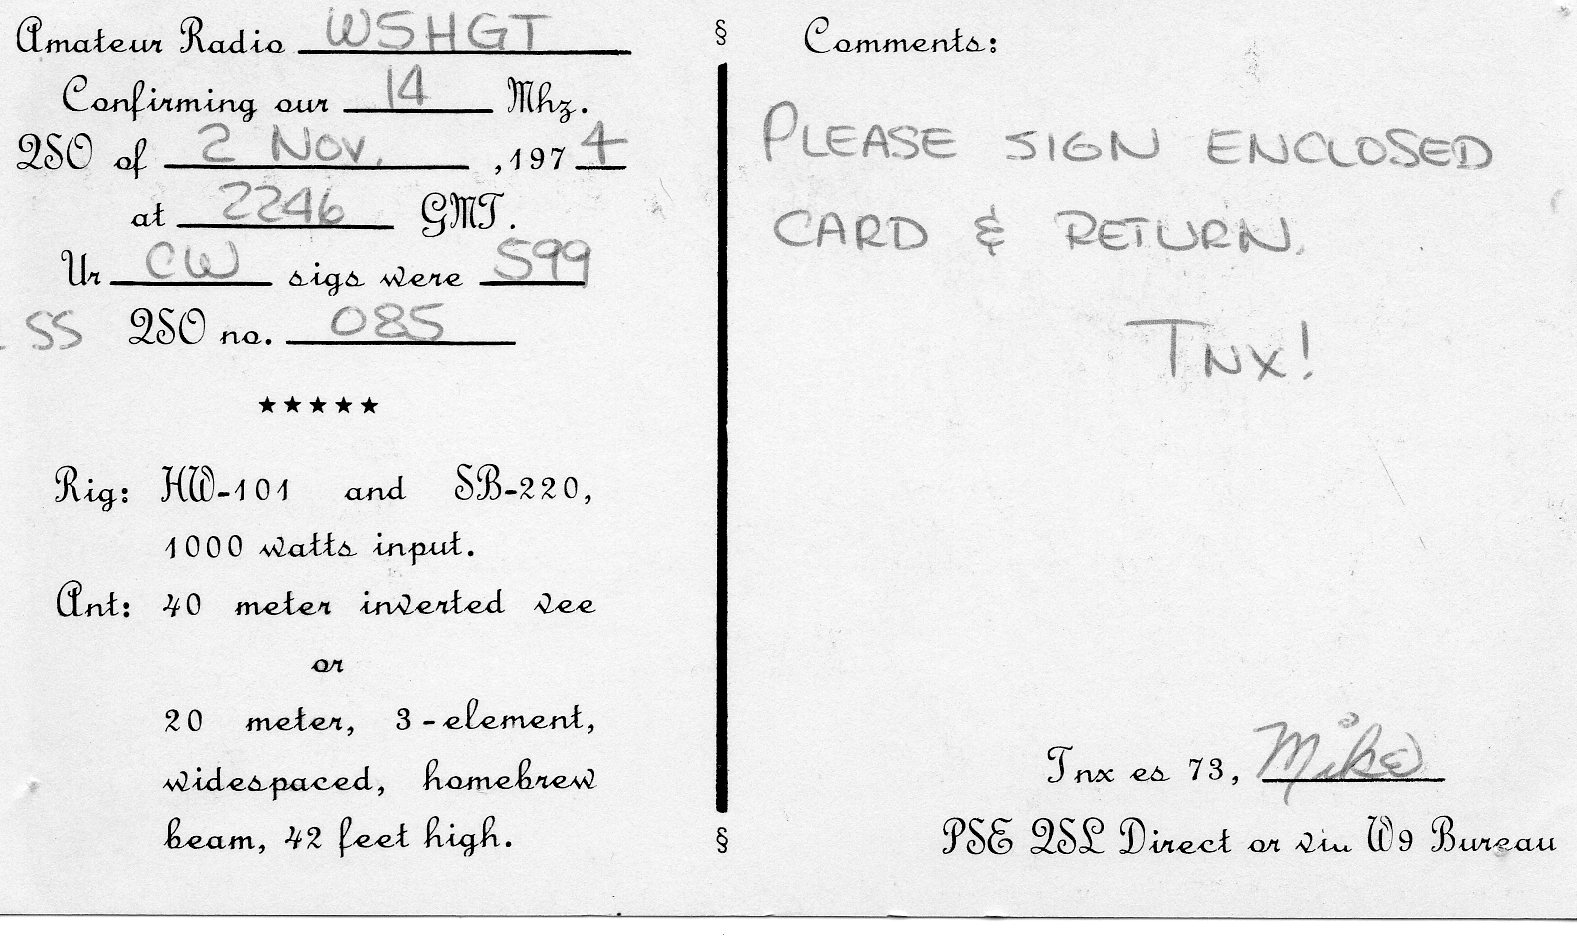 Amateur Radio W5HGT
Confirming our 14 Mhz.
QSO of 2 Nov. , 1974
at 2246 GMT.
Ur CW sigs were 599
SS QSO no. 085
★★★★★
Rig: HW-101 and SB-220,
1000 watts input.
Ant: 40 meter inverted vee
or
20 meter, 3-element,
widespaced, homebrew
beam, 42 feet high.
§
§
Comments:
PLEASE SIGN ENCLOSED
CARD & RETURN.
TNX!
Tnx es 73, Mike
PSE QSL Direct or via W9 Bureau